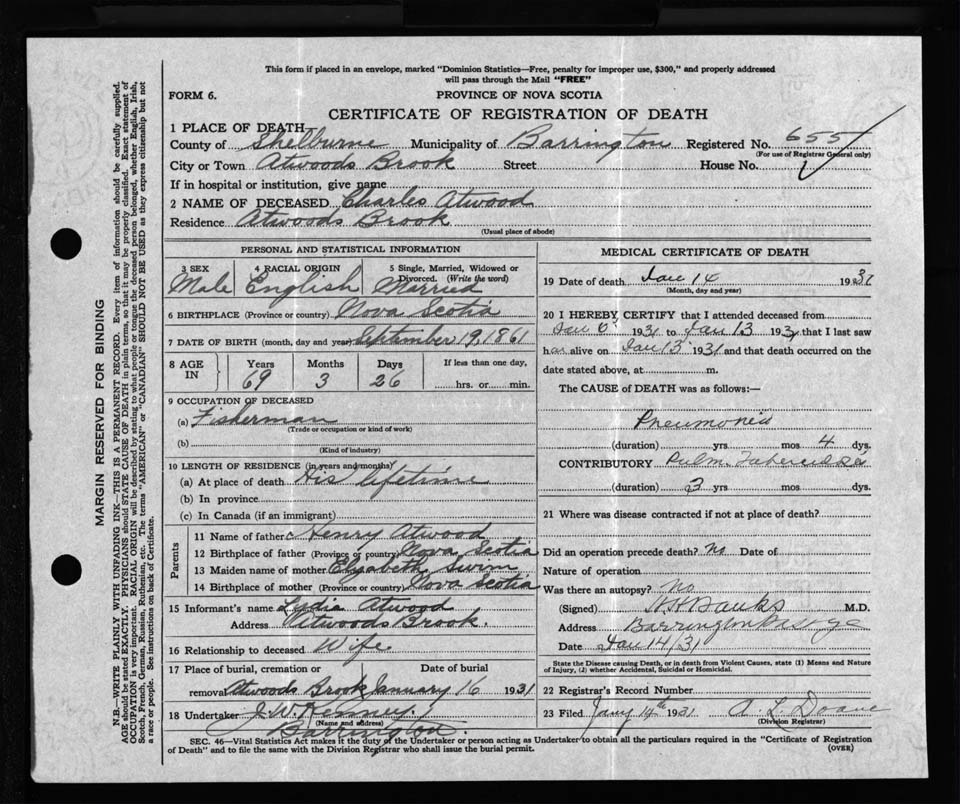 This form if placed in an envelope, marked "Dominion Statistics—Free, penalty for improper use, $300," and properly addressed
will pass through the Mail "FREE"
FORM 6.
PROVINCE OF NOVA SCOTIA
CERTIFICATE OF REGISTRATION OF DEATH
1 PLACE OF DEATH
County of Shelburne Municipality of Barrington Registered No. 655
(For use of Registrar General only)
City or Town Atwoods Brook Street House No.
If in hospital or institution, give name
2 NAME OF DECEASED Charles Atwood
Residence Atwoods Brook
(Usual place of abode)
MARGIN RESERVED FOR BINDING
N.B.—WRITE PLAINLY WITH UNFADING INK—THIS IS A PERMANENT RECORD. Every item of information should be carefully supplied.
AGE should be stated EXACTLY. PHYSICIANS should STATE CAUSE OF DEATH in plain terms, so that it may be properly classified. Exact statement of
OCCUPATION is very important. RACIAL ORIGIN will be described by stating to what people or tongue the deceased person belonged, whether English, Irish,
Scotch, French, German, Russian, Ruthenian, etc. The terms "AMERICAN" or "CANADIAN" SHOULD NOT BE USED as they express citizenship but not
a race or people. See instructions on back of Certificate.
PERSONAL AND STATISTICAL INFORMATION
3 SEX
Male
4 RACIAL ORIGIN
English
5 Single, Married, Widowed or
Divorced. (Write the word)
Married
6 BIRTHPLACE (Province or country) Nova Scotia
7 DATE OF BIRTH (month, day and year) September 19, 1861
8 AGE
IN
Years
69
Months
3
Days
26
If less than one day,
hrs. or min.
9 OCCUPATION OF DECEASED
(a) Fisherman
(Trade or occupation or kind of work)
(b)
(Kind of industry)
10 LENGTH OF RESIDENCE (in years and months)
(a) At place of death His lifetime
(b) In province
(c) In Canada (if an immigrant)
Parents
11 Name of father Henry Atwood
12 Birthplace of father (Province or country) Nova Scotia
13 Maiden name of mother Elizabeth Swim
14 Birthplace of mother (Province or country) Nova Scotia
15 Informant's name Lydia Atwood
Address Atwoods Brook.
16 Relationship to deceased Wife
17 Place of burial, cremation or
removal Atwoods Brook
Date of burial
January 16 1931
18 Undertaker J. W. Kenney.
(Name and address)
Barrington.
MEDICAL CERTIFICATE OF DEATH
19 Date of death Jan 14 1931
(Month, day and year)
20 I HEREBY CERTIFY that I attended deceased from
Jan 6 1931 to Jan 13 1931 that I last saw
h alive on Jan 13 1931 and that death occurred on the
date stated above, at m.
The CAUSE of DEATH was as follows:—
Pneumonia
(duration) yrs mos 4 dys.
CONTRIBUTORY Pulm Tuberculosis
(duration) 3 yrs mos dys.
21 Where was disease contracted if not at place of death?
Did an operation precede death? No Date of
Nature of operation
Was there an autopsy? No
(Signed) Banks M.D.
Address Barrington Passage
Date Jan 14/31
State the Disease causing Death, or in death from Violent Causes, state (1) Means and Nature
of Injury, (2) whether Accidental, Suicidal or Homicidal.
22 Registrar's Record Number
23 Filed Jany 14th 1931 A. L. Doane
(Division Registrar)
SEC. 46—Vital Statistics Act makes it the duty of the Undertaker or person acting as Undertaker to obtain all the particulars required in the "Certificate of Registration
of Death" and to file the same with the Division Registrar who shall issue the burial permit.
(OVER)